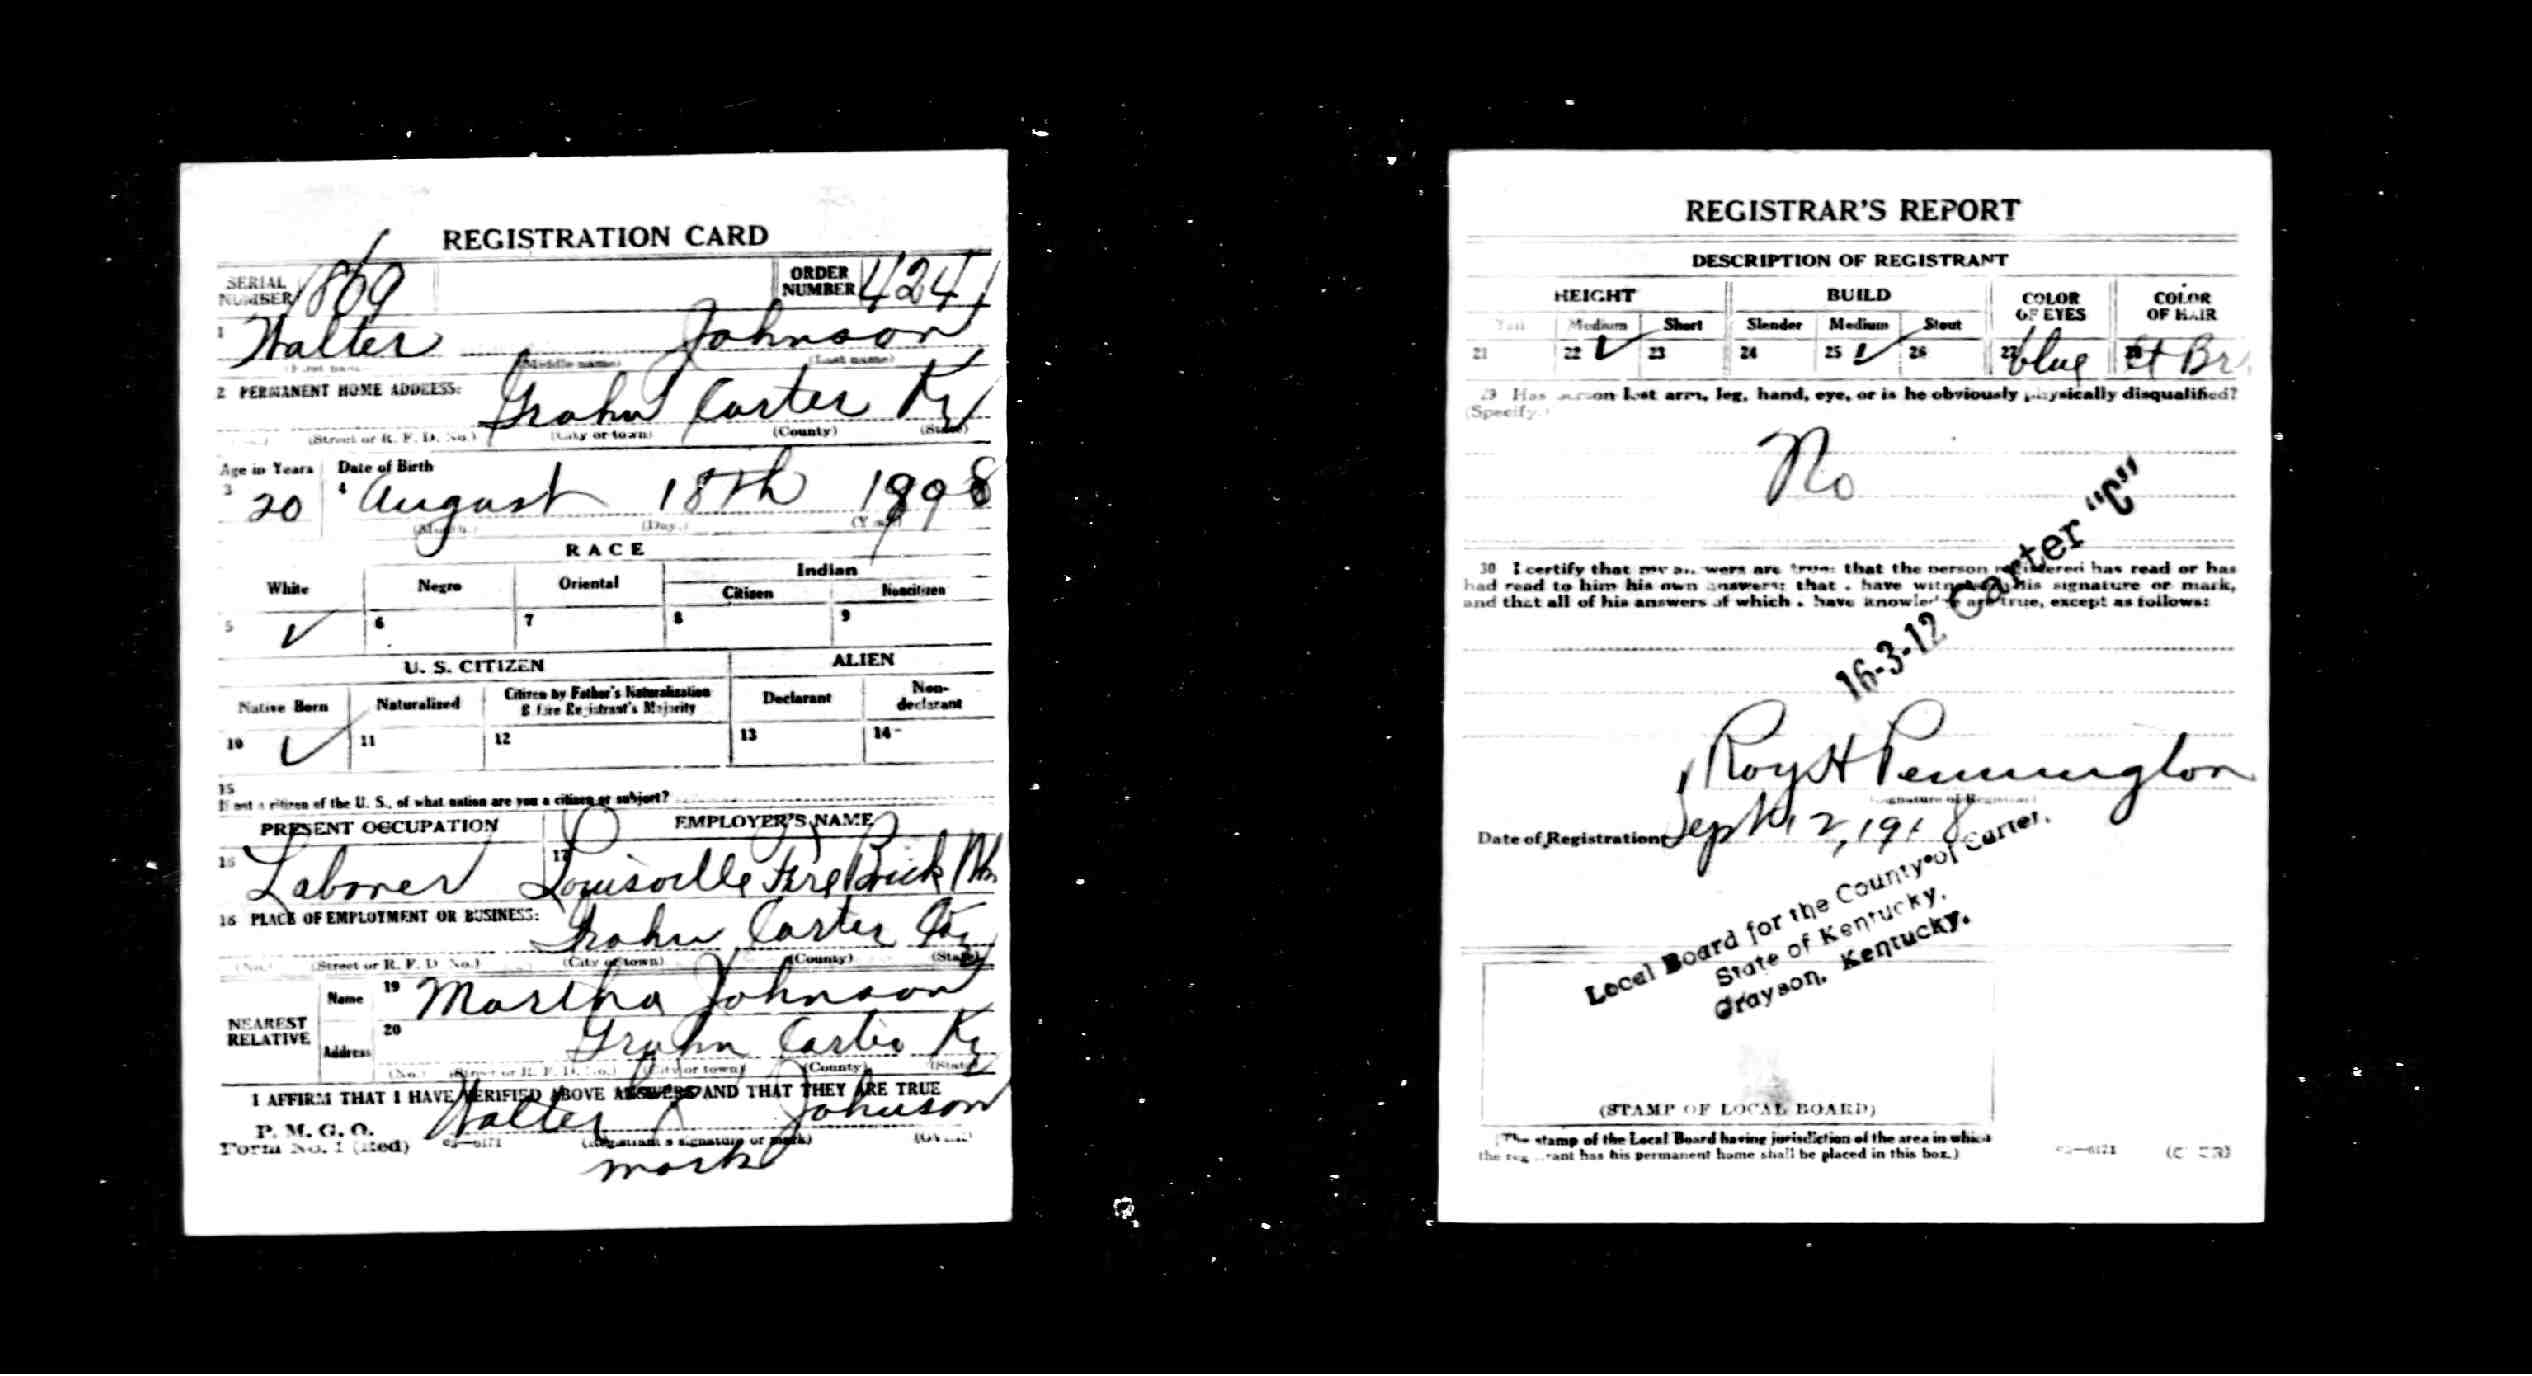 REGISTRATION CARD
SERIAL NUMBER 1869 ORDER NUMBER 4244
1 Walter Johnson
(First name) (Middle name) (Last name)
2 PERMANENT HOME ADDRESS: Grahn Carter Ky
(No.) (Street or R. F. D. No.) (City or town) (County) (State)
Age in Years Date of Birth
3 20 4 August 18th 1898
(Month.) (Day.) (Year)
RACE
White Negro Oriental Indian
Citizen Noncitizen
5 ✓ 6 7 8 9
U. S. CITIZEN ALIEN
Native Born Naturalized Citizen by Father's Naturalization Before Registrant's Majority Declarant Non-declarant
10 ✓ 11 12 13 14
15
If not a citizen of the U. S., of what nation are you a citizen or subject?
PRESENT OCCUPATION EMPLOYER'S NAME
16 Laborer 17 Louisville Fire Brick
18 PLACE OF EMPLOYMENT OR BUSINESS:
Grahn Carter Ky
(No.) (Street or R. F. D. No.) (City or town) (County) (State)
NEAREST RELATIVE Name 19 Martha Johnson
Address 20 Grahn Carter Ky
(No.) (Street or R. F. D. No.) (City or town) (County) (State)
I AFFIRM THAT I HAVE VERIFIED ABOVE ANSWERS AND THAT THEY ARE TRUE
P. M. G. O.
Form No. 1 (Red) 03—6171 Walter X Johnson
(Registrant's signature or mark) (OVER)
mark
REGISTRAR'S REPORT
DESCRIPTION OF REGISTRANT
HEIGHT BUILD COLOR OF EYES COLOR OF HAIR
Tall Medium Short Slender Medium Stout
21 22 ✓ 23 24 25 ✓ 26 27 blue 28 Lt Br
29 Has person lost arm, leg, hand, eye, or is he obviously physically disqualified?
(Specify.)
No
30 I certify that my answers are true; that the person registered has read or has
had read to him his own answers; that I have witnessed his signature or mark,
and that all of his answers of which I have knowledge are true, except as follows:
16-3-12 Carter "C"
Roy H Pennington
(Signature of Registrar)
Date of Registration Sept 12, 1918
Local Board for the County of Carter,
State of Kentucky,
Grayson, Kentucky.
(STAMP OF LOCAL BOARD)
(The stamp of the Local Board having jurisdiction of the area in which
the registrant has his permanent home shall be placed in this box.)
03—6171 (OVER)